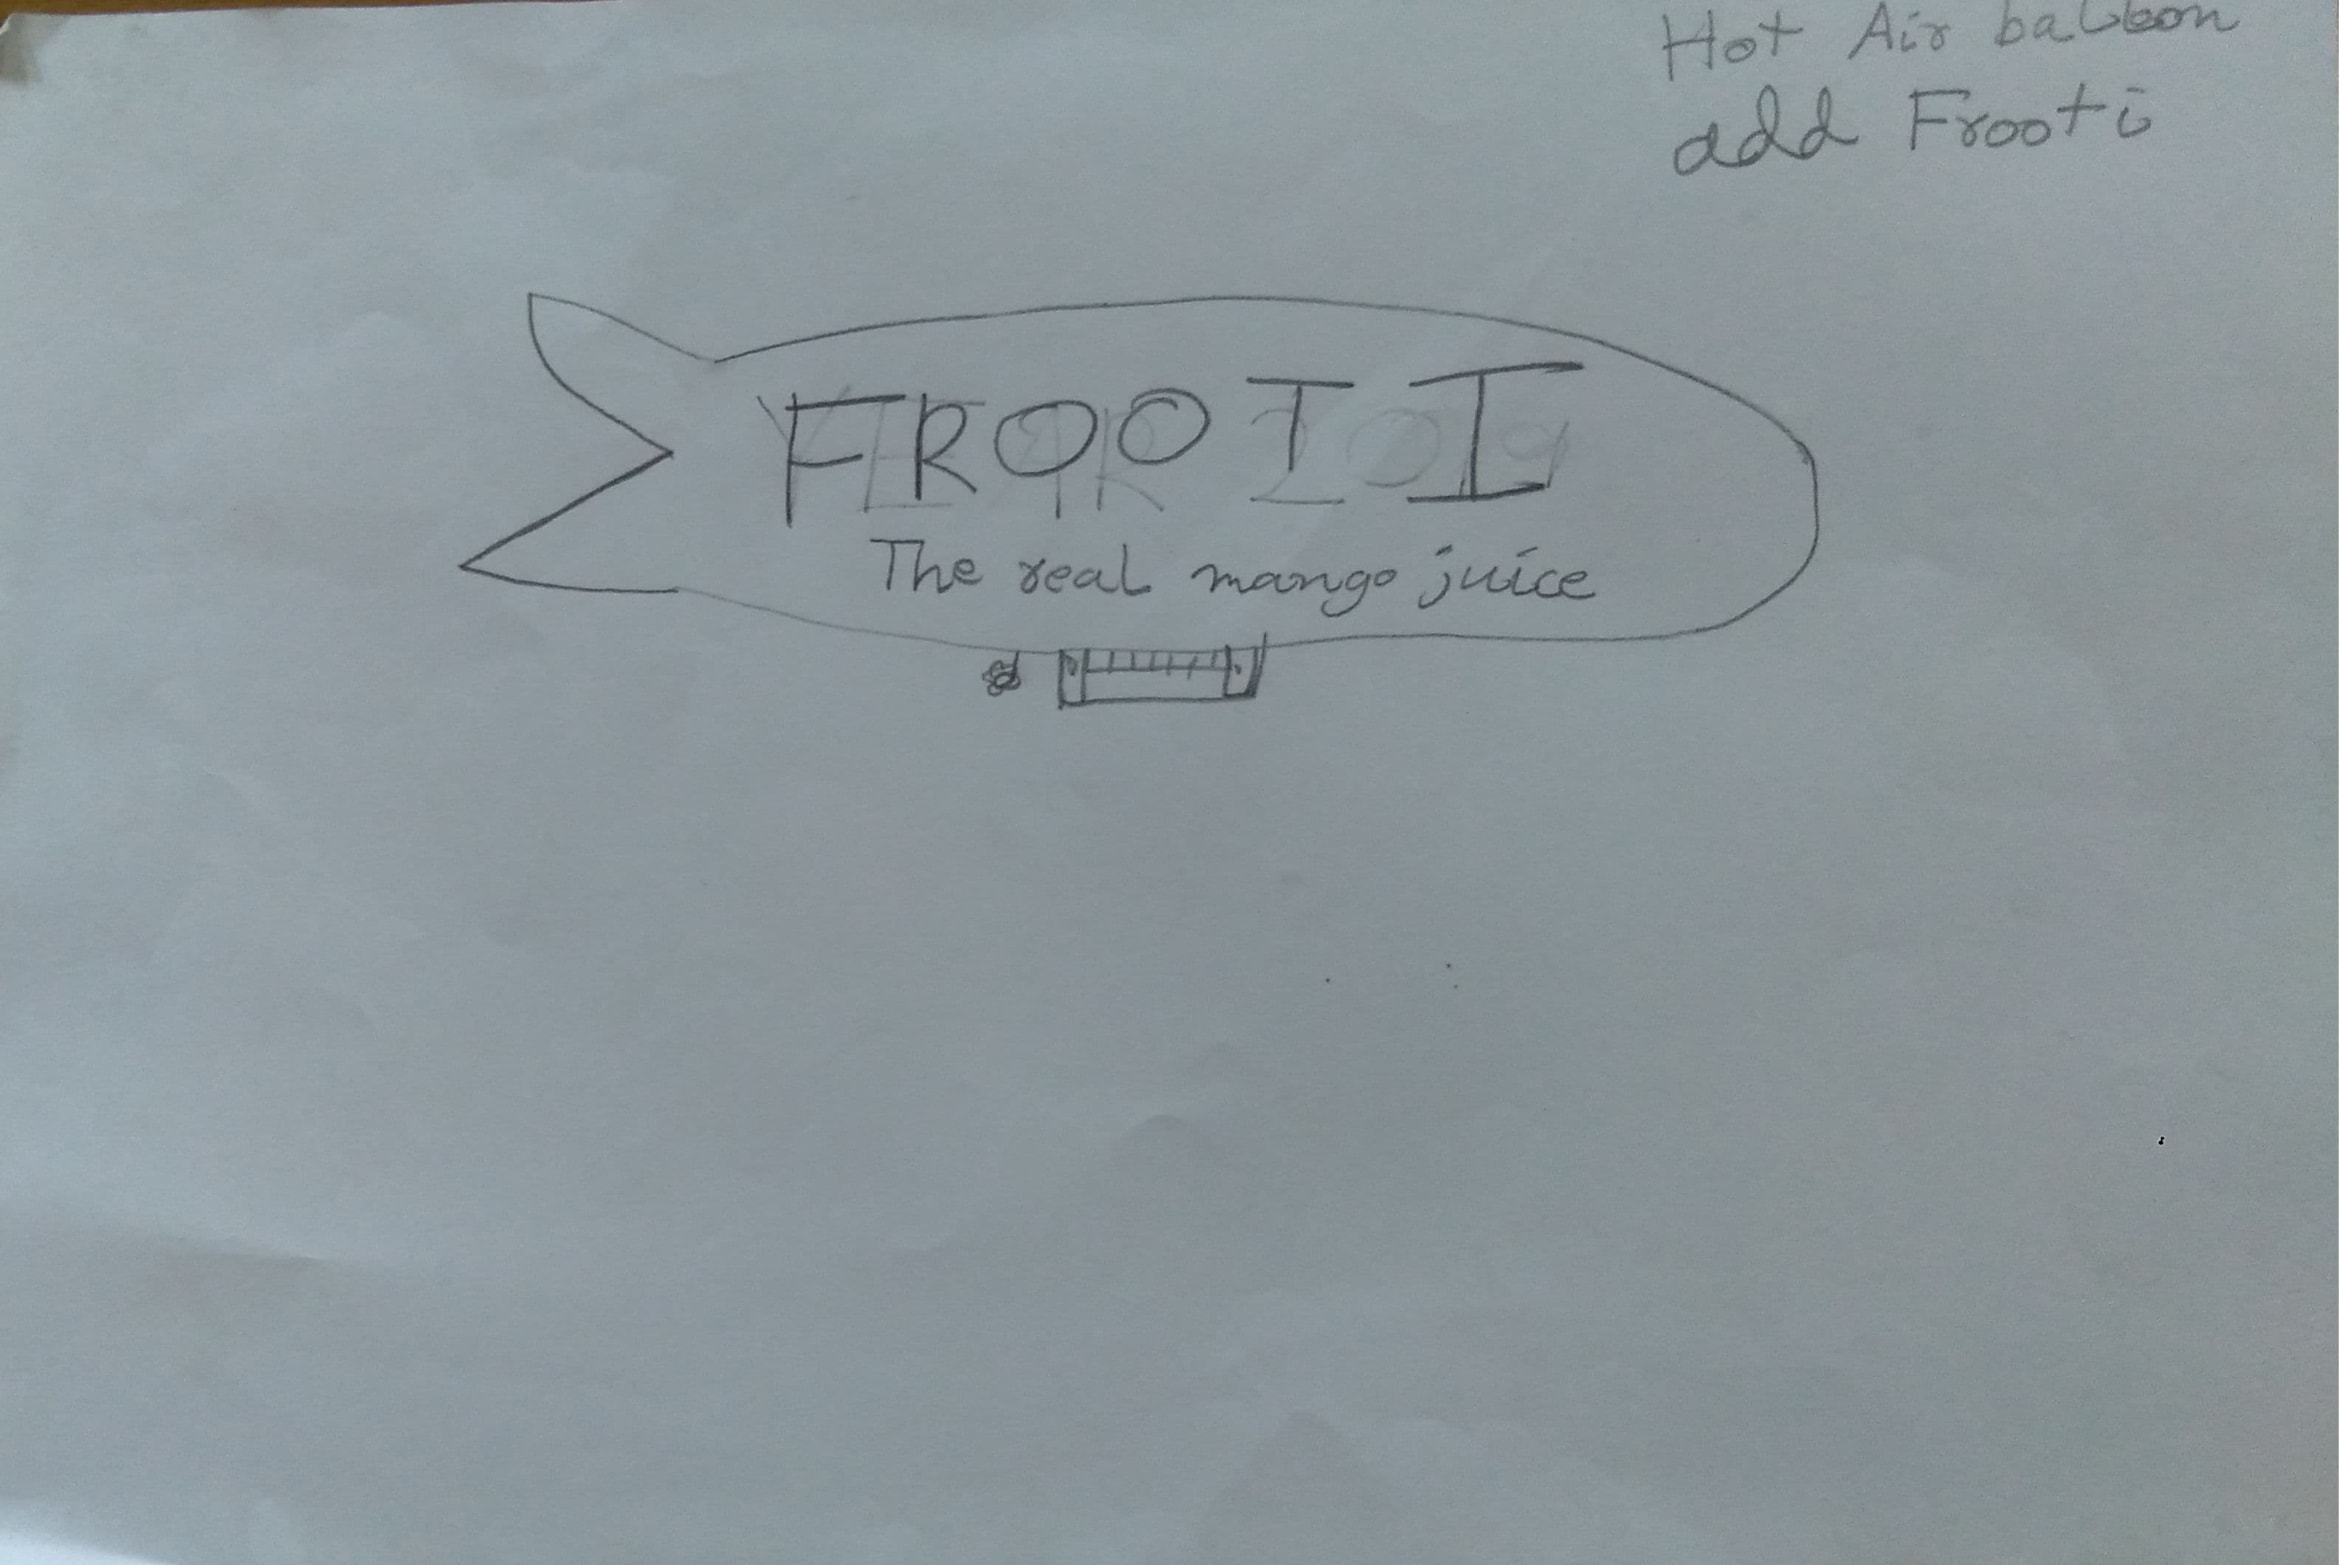 Hot Air balloon
add Frooti
FROOTI
The real mango juice